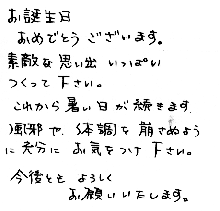 お誕生日
おめでとうございます。
素敵な思い出いっぱい
つくって下さい。
これから暑い日が続きます。
風邪や、体調を崩さぬよう
に充分にお気をつけ下さい。
今後ともよろしく
お願いいたします。